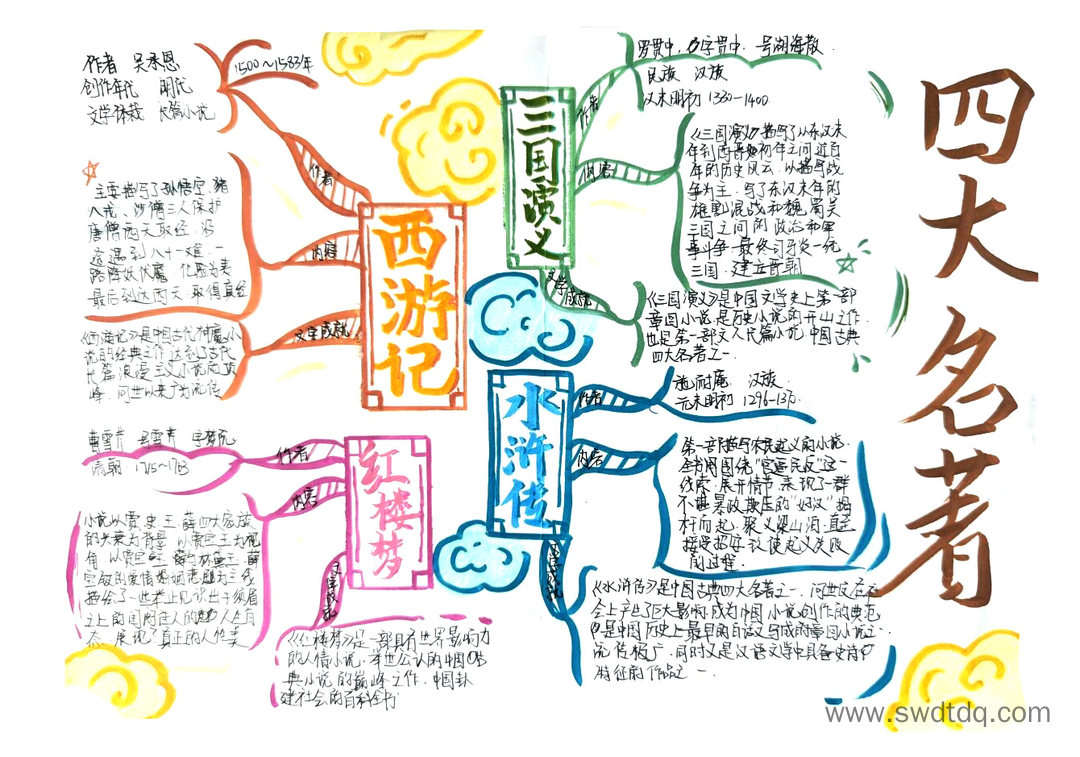 四大名著
西游记
作者
作者 吴承恩
1500~1583年
创作年代 明代
文学体裁 长篇小说
内容
主要描写了孙悟空、猪
八戒、沙僧三人保护
唐僧西天取经、沿
途遇到八十一难、一
路降妖伏魔、化险为夷
最后到达西天、取得真经
文字成就
《西游记》是中国古代神魔小
说的经典之作,达到了古代
长篇浪漫主义小说的顶
峰,问世以来广为流传
三国演义
作者
罗贯中,名字贯中,号湖海散
民族 汉族
汉末明初 1330-1400
内容
《三国演义》描写了从东汉末
年到西晋初年之间近百
年的历史风云,以描写战
争为主,写了东汉末年的
雄割混战和魏、蜀、吴
三国之间的政治和军
事斗争,最终司马炎一统
三国,建立晋朝
文学成就
《三国演义》是中国文学史上第一部
章回小说,是历史小说的开山之作,
也是第一部文人长篇小说,中国古典
四大名著之一
水浒传
作者
施耐庵 汉族
元末明初 1296-1370
内容
第一部描写农民起义的小说.
全书围绕"官逼民反"这一
线索展开情节,表现了一群
不堪暴政欺压的"好汉"揭
杆而起,聚义梁山泊,直至
接受招安致使起义失败
的过程
文学成就
《水浒传》是中国古典四大名著之一,问世后,在社
会上产生了巨大影响,成为中国小说创作的典范
也是中国历史上最早的白话文写成的章回小说之一
流传极广,同时又是汉语文学中具备史诗
特征的作品之一
红楼梦
作者
曹雪芹 号雪芹 字梦阮
清朝 1715~1763
内容
小说以贾、史、王、薛四大家族
的兴衰为背景,以贾宝玉为视
角,以贾宝玉
宝钗的爱情婚姻悲剧为主线
描绘了一些举止见识出于须眉
之上的闺阁佳人的人生百
态,展现了真正的人性美
文学成就
《红楼梦》是一部具有世界影响力
的人情小说,举世公认的中国古
典小说的巅峰之作,中国封
建社会的百科全书
www.swdtdq.com